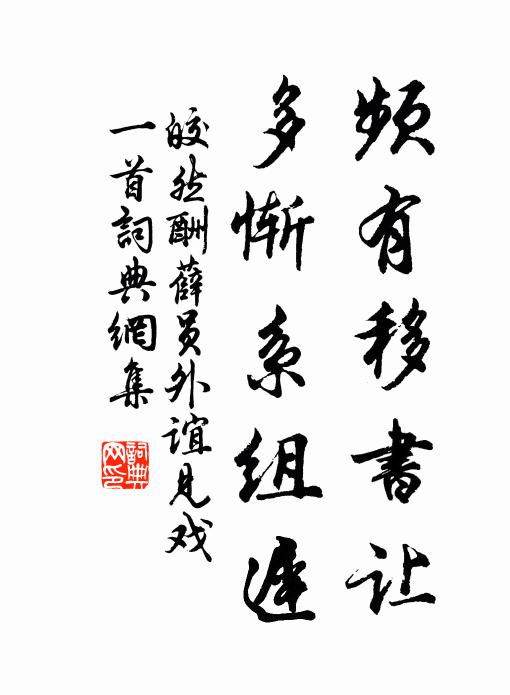 频有移书让
多惭系组迟
皎然酬薛员外谊见戏
一首词典網集
詞典網印